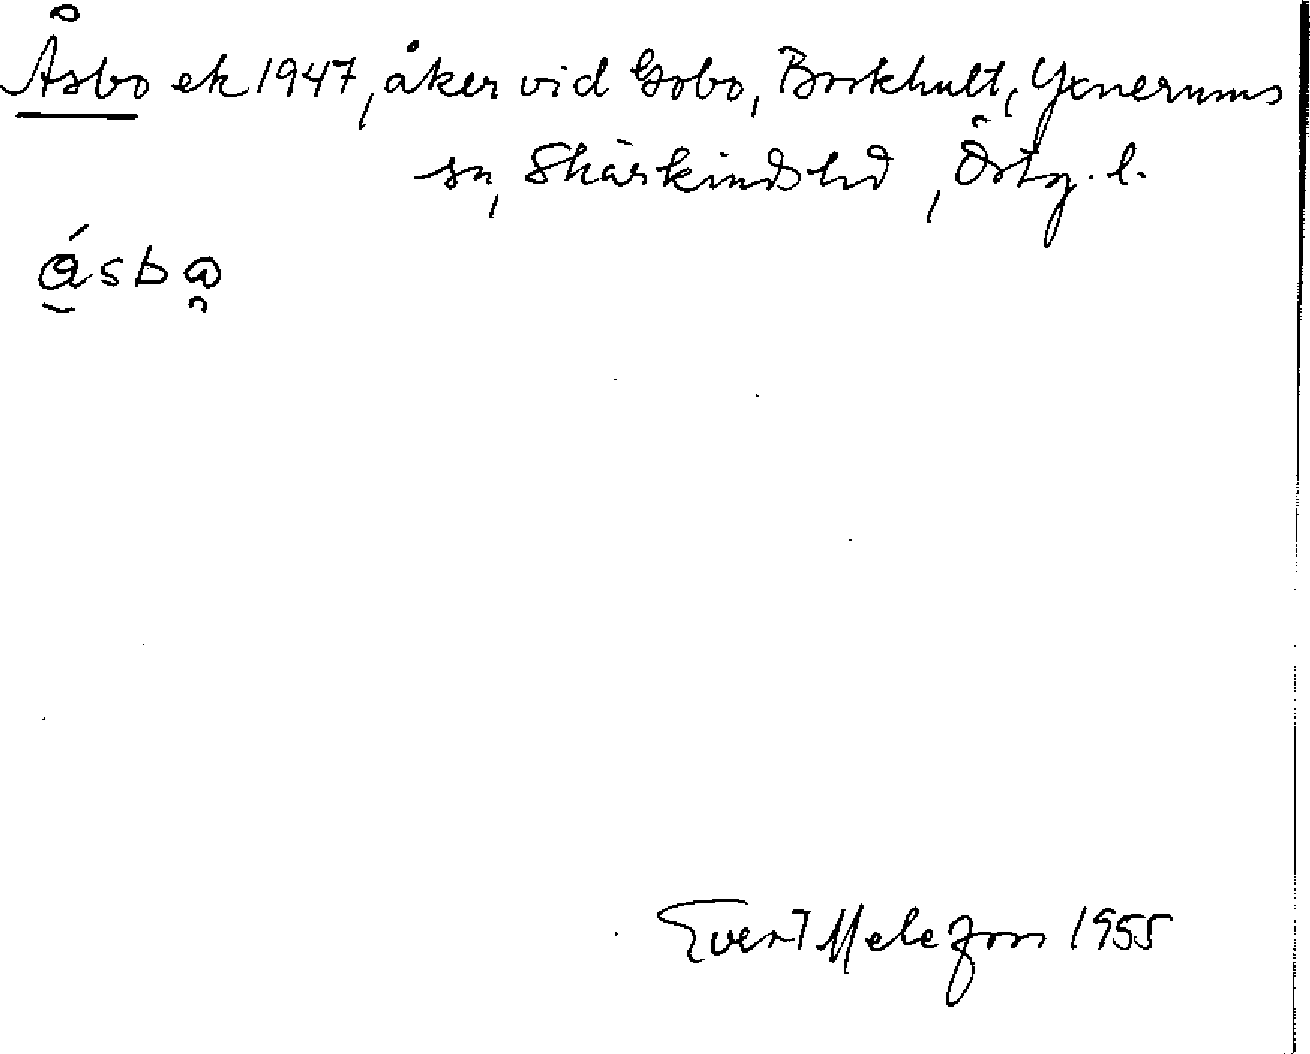 Åsbo ek 1947, åker vid Gobo, Borkhult, Yxnerums
sn, Skärkinds hd, Östg. l.
Evert Melefors 1955